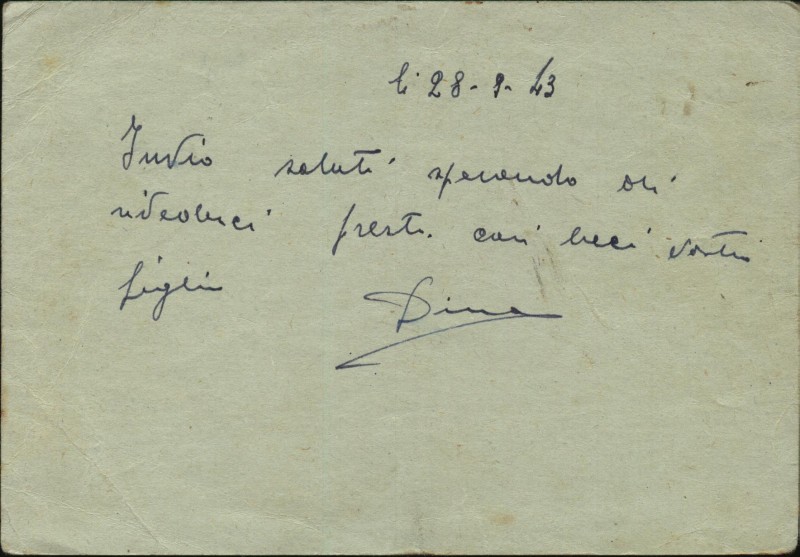 li 28-9-43
Invio saluti sperando di
rivederci presto. cari baci vostra
figlia Dina